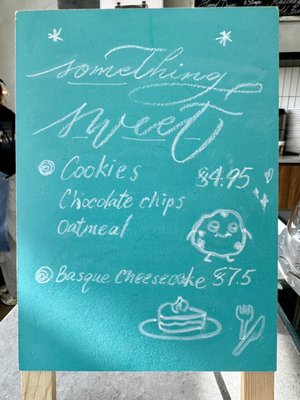 something
sweet
Cookies $4.95
Chocolate chips
Oatmeal
Basque cheesecake $7.5